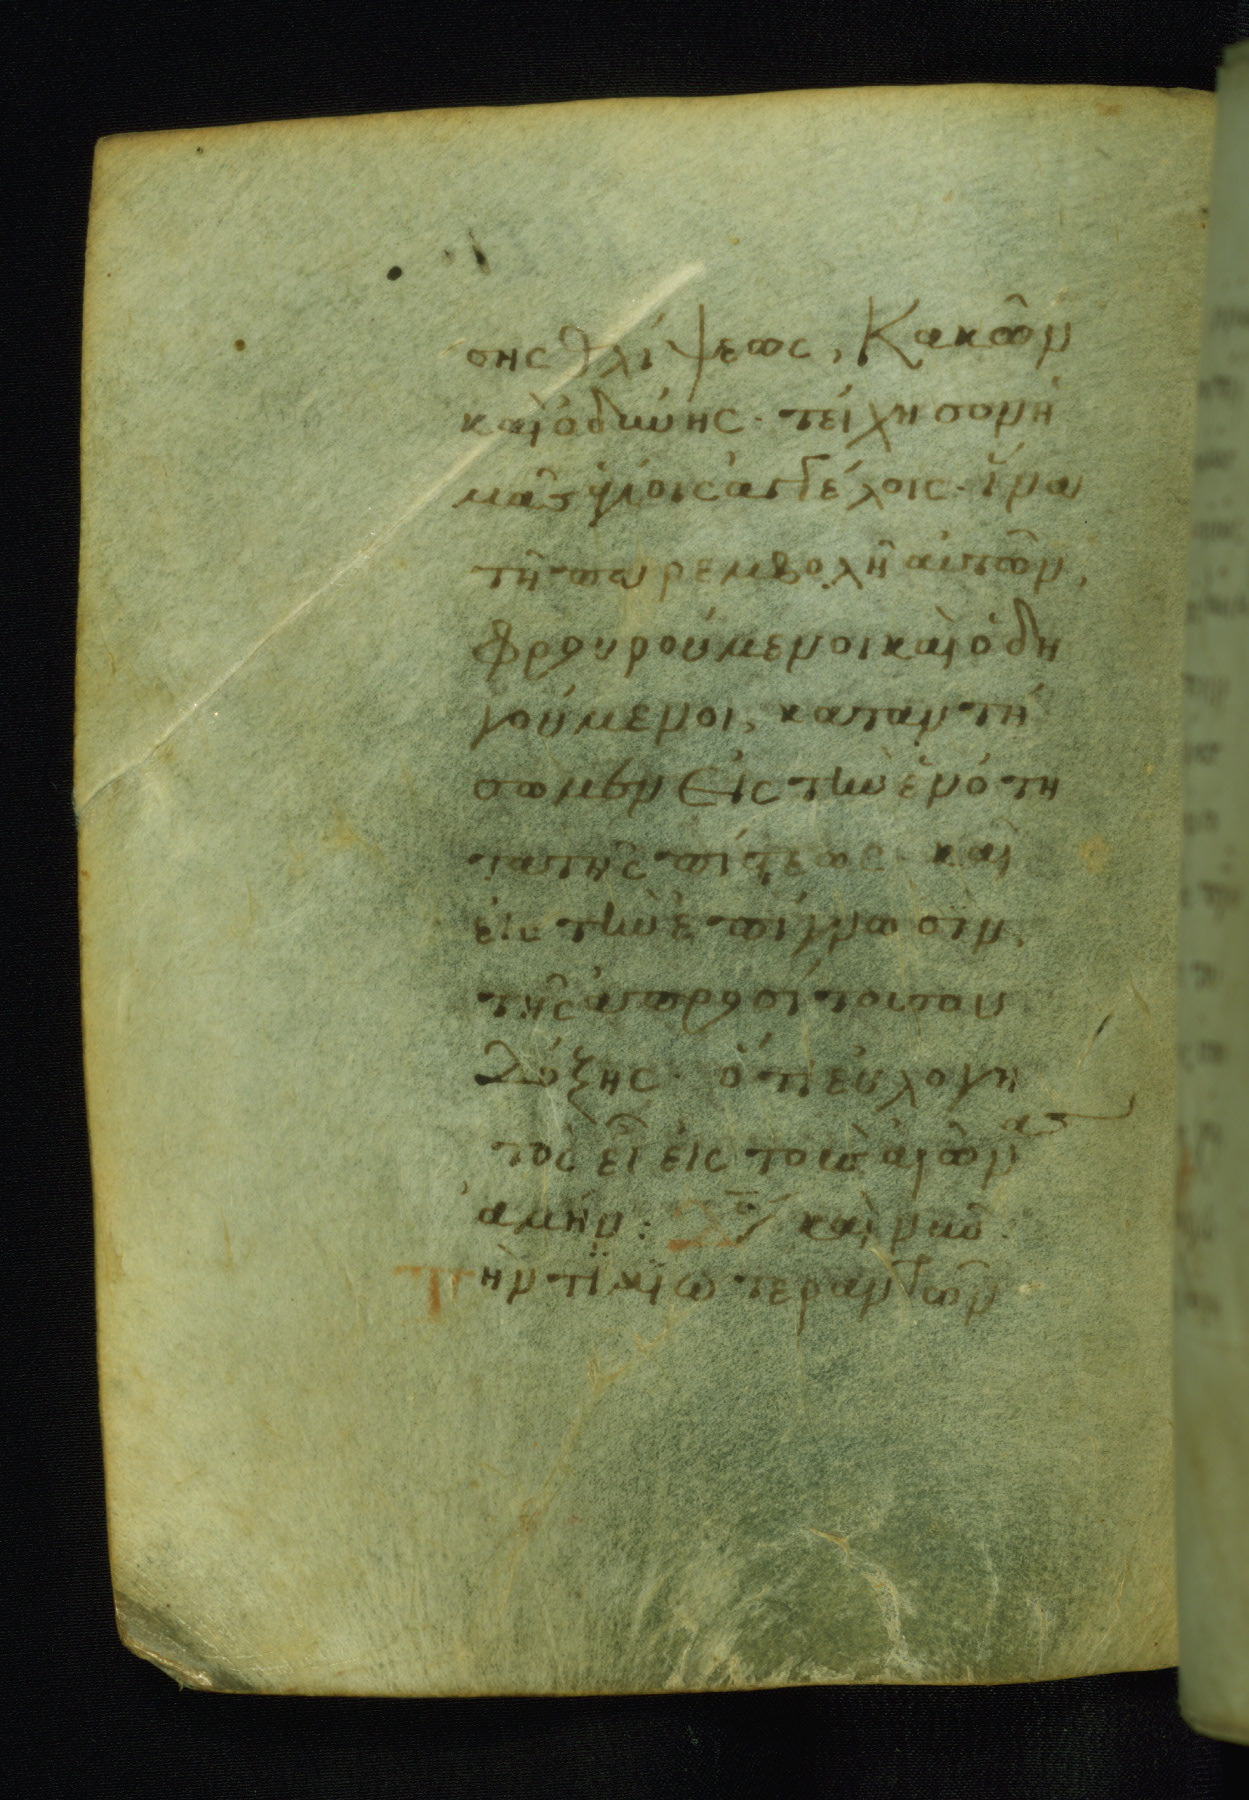 σης θλίψεως, Κακῶν
καὶ ὀδύνης· τείχησον ἡ
μᾶς ἁγίοις ἀγγέλοις· ἵνα
τῇ παρεμβολῇ αὐτῶν,
φρουρούμενοι καὶ ὁδη
γούμενοι, καταντή
σωμεν εἰς τὴν ἑνότη
τα τῆς πίστεως· καὶ
εἰς τὴν ἐπίγνωσιν,
τῆς ἀπροσίτου σου
δόξης· ὅτι εὐλογη
τὸς εἶ εἰς τοὺς αἰῶνας
ἀμήν:
Τὴν τιμιωτέραν τῶν